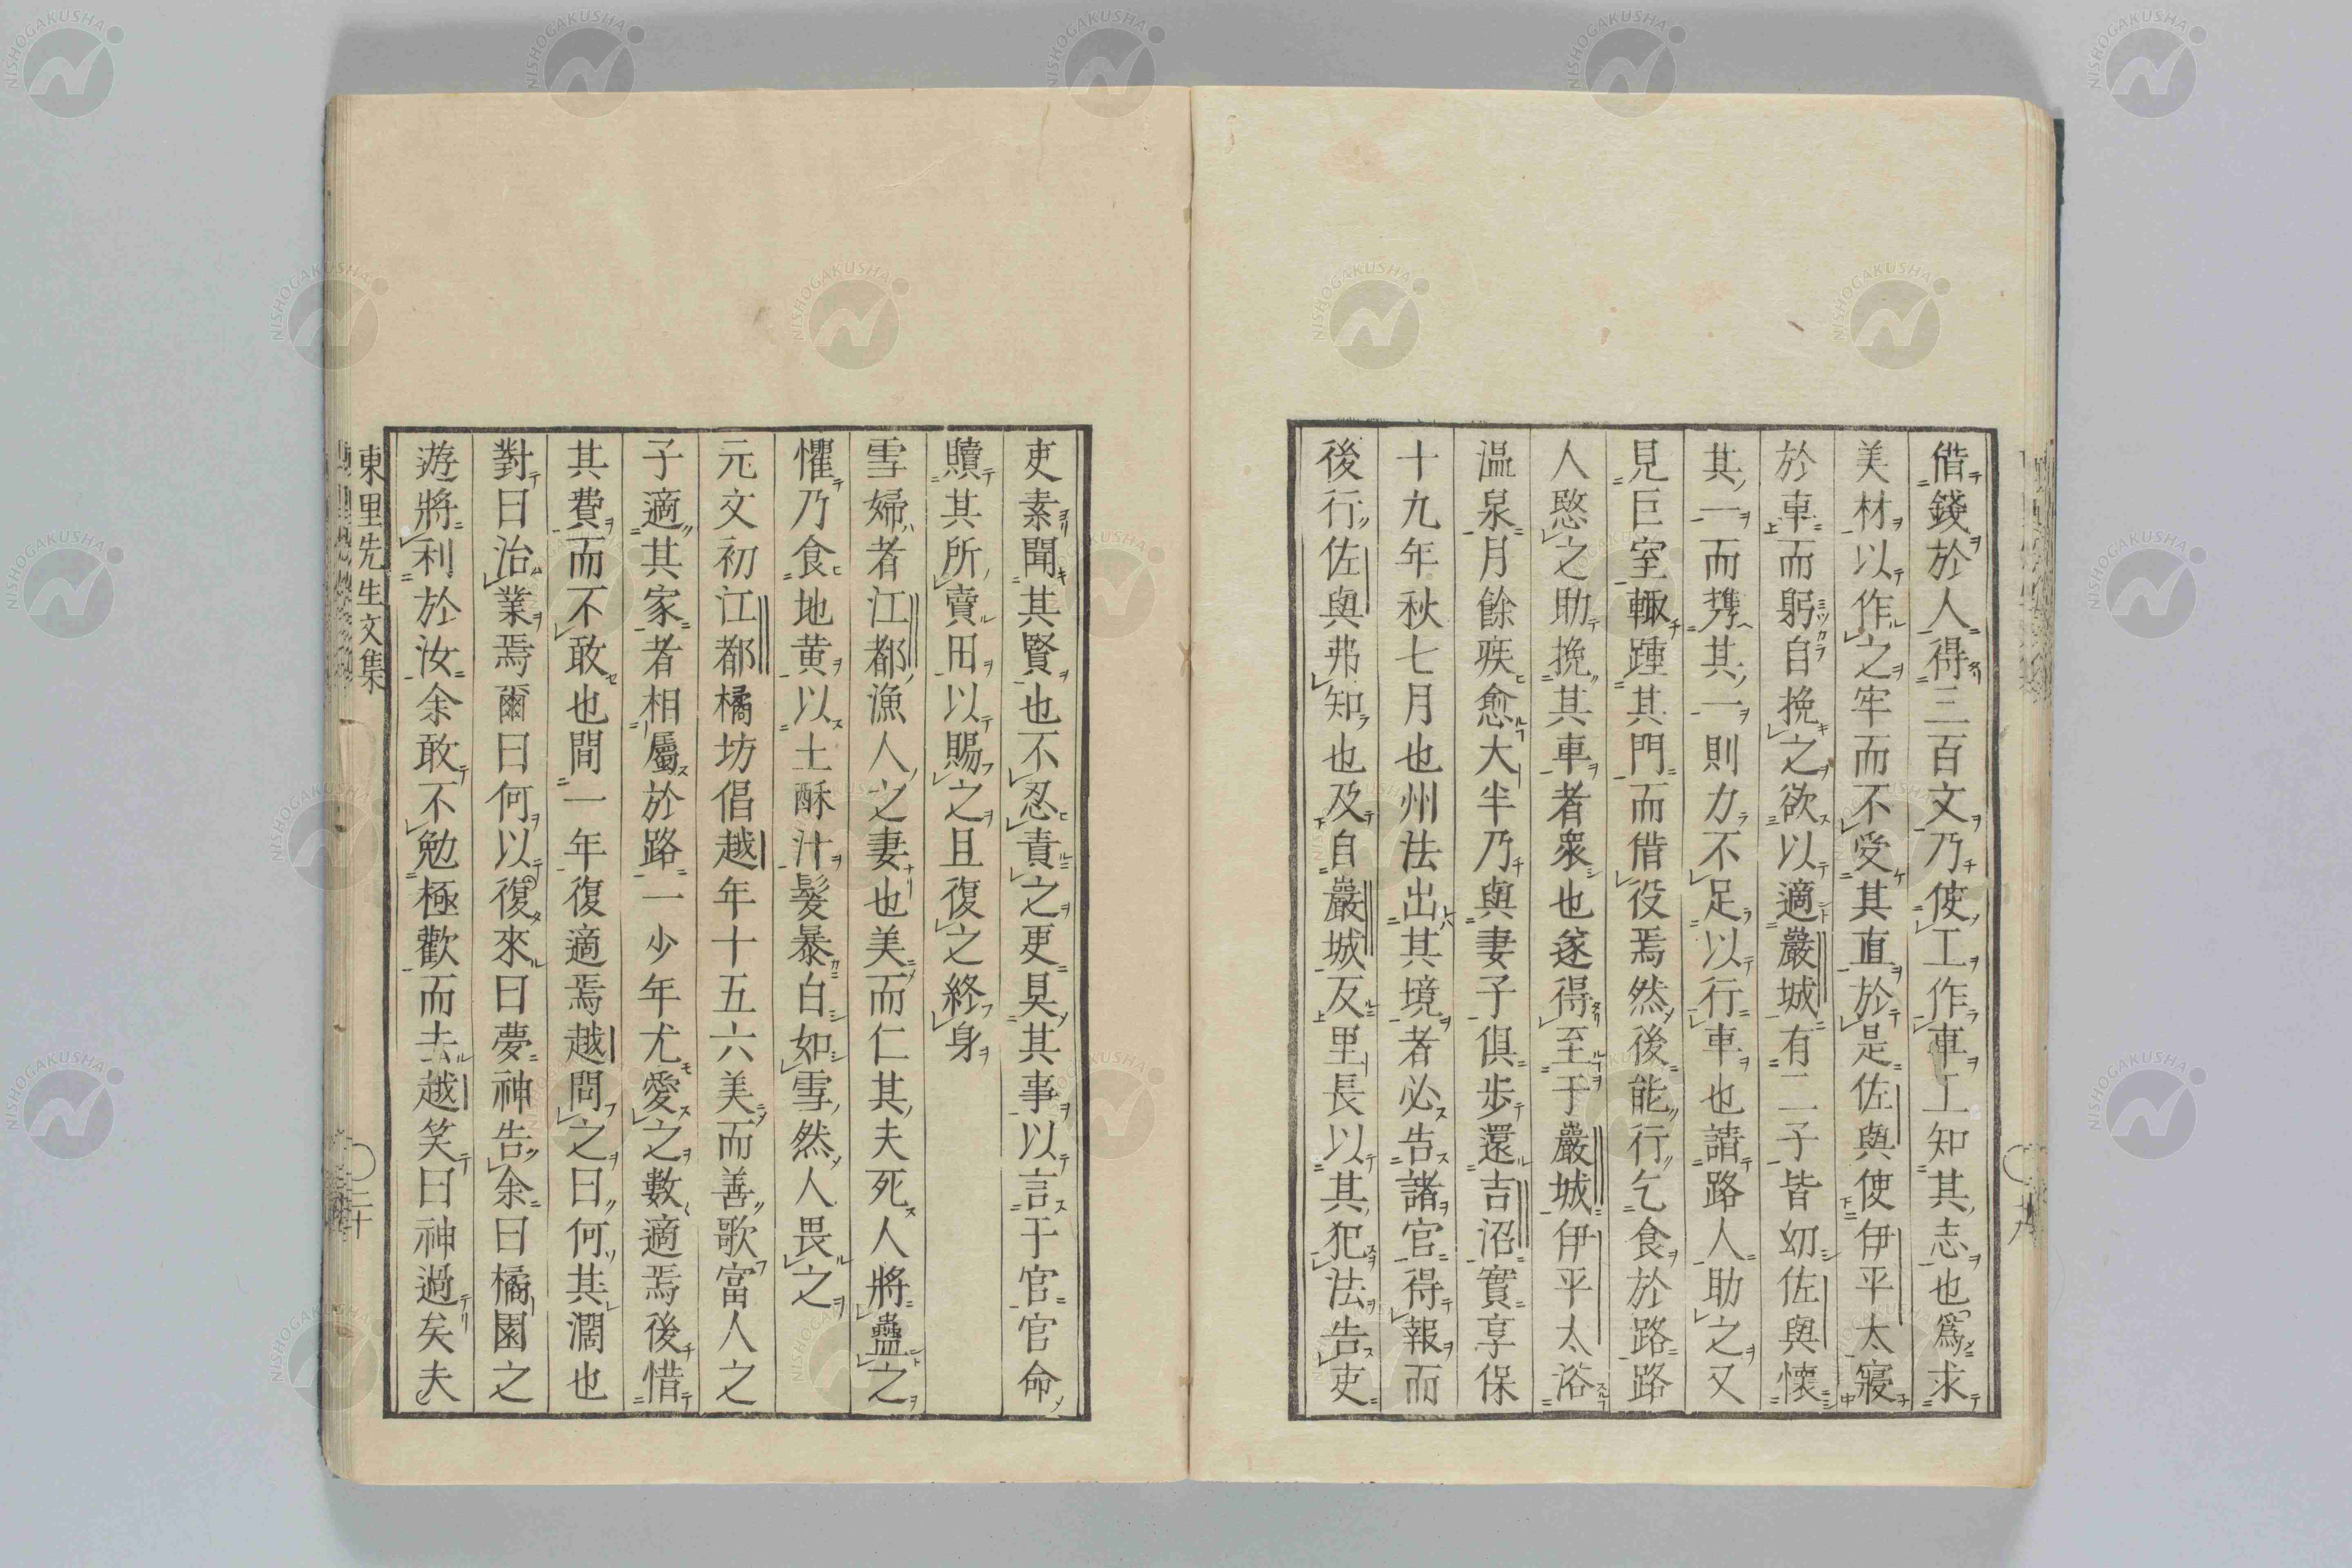 借錢於人得三百文乃使工作車工知其志也爲求
美材以作之牢而不受其直於是佐與使伊平太寢
於車而躬自挽之欲以適嚴城有二子皆幼佐與懷
其一而携其一則力不足以行車也請路人助之又
見巨室輙踵其門而借役焉然後能行乞食於路路
人愍之助挽其車者衆也遂得至于嚴城伊平太浴
溫泉月餘疾愈大半乃與妻子俱步還吉沼實享保
十九年秋七月也州法出其境者必告諸官得報而
後行佐與弗知也及自嚴城反里長以其犯法告吏
吏素聞其賢也不忍責之更具其事以言于官官命
贖其所賣田以賜之且復之終身
雪婦者江都漁人之妻也美而仁其夫死人將蠱之
懼乃食地黄以土酥汁髮暴白如雪然人畏之
元文初江都橘坊倡越年十五六美而善歌富人之
子適其家者相屬於路一少年尤愛之數適焉後惜
其費而不敢也間一年復適焉越問之曰何其濶也
對曰治業焉爾曰何以復來曰夢神告余曰橘園之
遊將利於汝余敢不勉極歡而去越笑曰神過矣夫
東里先生文集
二十
NISHOGAKUSHA